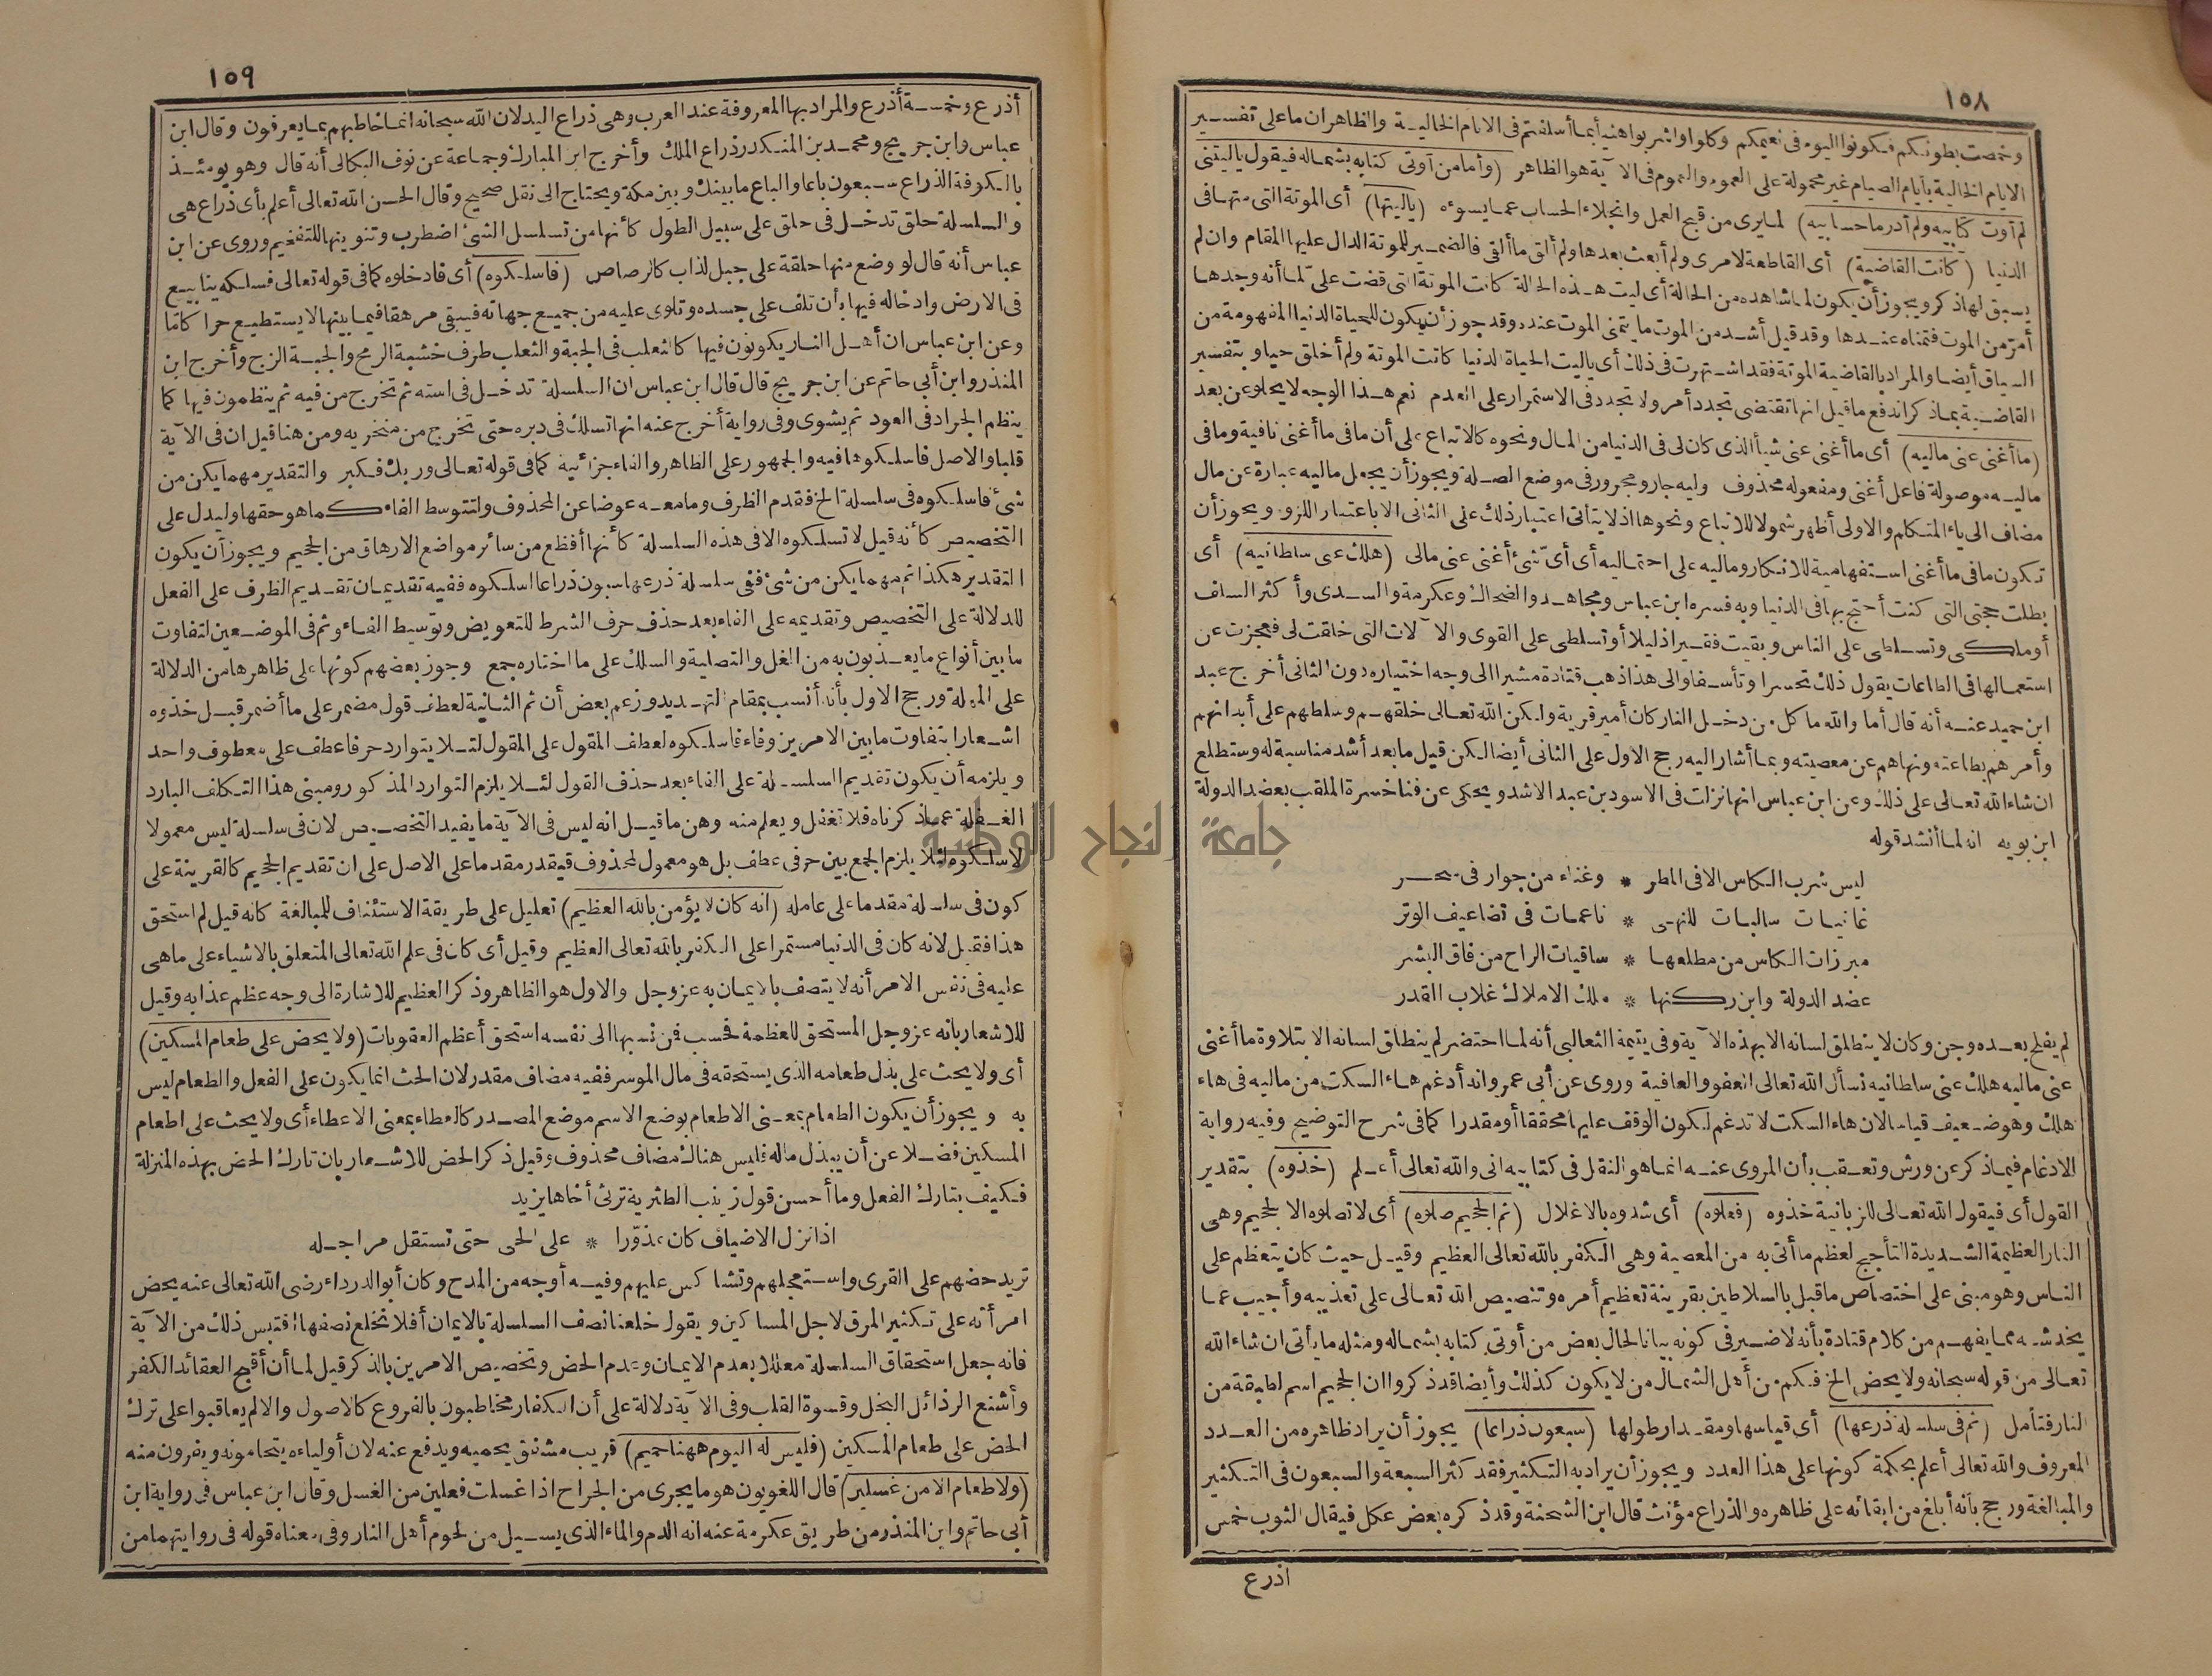 ١٥٨
وخمصت بطونكم فكونوا اليوم فى نعيمكم وكلوا واشربوا هنيأ بما أسلفتم فى الايام الخالية والظاهر ان ما على تفسير
الايام الخالية بأيام الصيام غير محمولة على العموم والعموم فى الآية هو الظاهر (وأما من أوتى كتابه بشماله فيقول ياليتنى
لم أوت كتابيه ولم أدر ما حسابيه) لما يرى من قبح العمل وانجلاء الحساب عما يسوءه (ياليتها) أى الموتة التى متها فى
الدنيا (كانت القاضية) أى القاطعة لامرى ولم أبعث بعدها ولم ألق ما ألقى فالضمير للموتة الدال عليها المقام وان لم
يسبق لها ذكر ويجوز أن يكون لما شاهده من الحالة أى ليت هذه الحالة كانت الموتة التى قضت علىّ لما أنه وجدها
أمرّ من الموت فتمناه عندها وقد قيل أشد من الموت ما يتمنى الموت عنده وقد جوز أن يكون للحياة الدنيا المفهومة من
السياق أيضا والمراد بالقاضية الموتة فقد اشتهرت فى ذلك أى ياليت الحياة الدنيا كانت الموتة ولم أخلق حيا وبتفسير
القاضية بما ذكر اندفع ما قيل انها تقتضى تجدد أمر ولا تجدد فى الاستمرار على العدم نعم هذا الوجه لا يخلو عن بعد
(ما أغنى عنى ماليه) أى ما أغنى عنى شيأ الذى كان لى فى الدنيا من المال ونحوه كالاتباع على أن ما فى ما أغنى نافية وما فى
ماليه موصولة فاعل أغنى ومفعوله محذوف وليه جار ومجرور فى موضع الصلة ويجوز أن يجعل ماليه عبارة عن مال
مضاف الى ياء المتكلم والاولى أظهر شمولا للاتباع ونحوها اذ لا يتأتى اعتبار ذلك على الثانى الا باعتبار اللزوم ويجوز أن
تكون ما فى ما أغنى استفهامية للانكار وماليه على احتماليه أى أىّ شئ أغنى عنى مالى (هلك عنى سلطانيه) أى
بطلت حجتى التى كنت أحتج بها فى الدنيا وبه فسره ابن عباس ومجاهد والضحاك وعكرمة والسدى وأكثر السلف
أو ملكى وتسلطى على الناس وبقيت فقيرا ذليلا أو تسلطى على القوى والآلات التى خلقت لى فعجزت عن
استعمالها فى الطاعات يقول ذلك تحسرا وتأسفا والى هذا ذهب قتادة مشيرا الى وجه اختياره دون الثانى أخرج عبد
ابن حميد عنه أنه قال أما والله ما كل من دخل النار كان أمير قرية ولكن الله تعالى خلقهم وسلطهم على أبدانهم
وأمرهم بطاعته ونهاهم عن معصيته وبما أشار اليه رجح الاول على الثانى أيضا لكن قيل ما بعد أشد مناسبة له وستطلع
ان شاء الله تعالى على ذلك وعن ابن عباس انها نزلت فى الاسود بن عبد الاشد ويحكى عن فناخسرة الملقب بعضد الدولة
ابن بويه انه لما أنشد قوله
ليس شرب الكاس الا فى المطر * وغناء من جوار فى سحر
غانيات سالبات للنهى * ناعمات فى تضاعيف الوتر
مبرزات الكاس من مطلعها * ساقيات الراح من فاق البشر
عضد الدولة وابن ركنها * ملك الاملاك غلاب القدر
لم يفلح بعده وجن وكان لا ينطلق لسانه الا بهذه الآية وفى يتيمة الثعالبى أنه لما احتضر لم ينطلق لسانه الا بتلاوة ما أغنى
عنى ماليه هلك عنى سلطانيه نسأل الله تعالى العفو والعافية وروى عن أبى عمرو انه أدغم هاء السكت من ماليه فى هاء
هلك وهو ضعيف قياسا لان هاء السكت لا تدغم لكون الوقف عليها محققا أو مقدرا كما فى شرح التوضيح وفيه رواية
الادغام فيما ذكر عن ورش وتعقب بأن المروى عنه انما هو النقل فى كتابيه انى والله تعالى أعلم (خذوه) بتقدير
القول أى فيقول الله تعالى للزبانية خذوه (فغلوه) أى شدوه بالاغلال (ثم الجحيم صلوه) أى لا تصلوه الا الجحيم وهى
النار العظيمة الشديدة التأجج لعظم ما أتى به من المعصية وهى الكفر بالله تعالى العظيم وقيل حيث كان يتعظم على
الناس وهو مبنى على اختصاص ما قبل بالسلاطين بقرينة تعظيم أمره وتنصيص الله تعالى على تعذيبه وأجيب عما
يخدشه مما يفهم من كلام قتادة بأنه لا ضير فى كونه بيانا لحال بعض من أوتى كتابه بشماله ومثله ما يأتى ان شاء الله
تعالى من قوله سبحانه ولا يحض الخ فكم من أهل الشمال من لا يكون كذلك وأيضا قد ذكروا ان الجحيم اسم لطبقة من
النار فتأمل (ثم فى سلسلة ذرعها) أى قياسها ومقدار طولها (سبعون ذراعا) يجوز أن يراد ظاهره من العدد
المعروف والله تعالى أعلم بحكمة كونها على هذا العدد ويجوز أن يراد به التكثير فقد كثر السبعة والسبعون فى التكثير
والمبالغة ورجح بأنه أبلغ من ابقائه على ظاهره والذراع مؤنث قال ابن الشحنة وقد ذكره بعض عكل فيقال الثوب خمس
أذرع
١٥٩
أذرع وخمسة أذرع والمراد بها المعروفة عند العرب وهى ذراع اليد لان الله سبحانه انما خاطبهم بما يعرفون وقال ابن
عباس وابن جريج ومحمد بن المنكدر ذراع الملك وأخرج ابن المبارك وجماعة عن نوف البكالى أنه قال وهو يومئذ
بالكوفة الذراع سبعون باعا والباع ما بينك وبين مكة ويحتاج الى نقل صحيح وقال الحسن الله تعالى أعلم بأى ذراع هى
والسلسلة حلق تدخل فى حلق على سبيل الطول كأنها من تسلسل الشئ اضطرب وتنوينها للتفخيم وروى عن ابن
عباس أنه قال لو وضع منها حلقة على جبل لذاب كالرصاص (فاسلكوه) أى فادخلوه كما فى قوله تعالى فسلكه ينابيع
فى الارض وادخاله فيها بأن تلف على جسده وتلوى عليه من جميع جهاته فيبقى مرهقا فيما بينها لا يستطيع حراكا مّا
وعن ابن عباس ان أهل النار يكونون فيها كالثعلب فى الجبة والثعلب طرف خشبة الرمح والجبة الزج وأخرج ابن
المنذر وابن أبى حاتم عن ابن جريج قال قال ابن عباس ان السلسلة تدخل فى استه ثم تخرج من فيه ثم ينظمون فيها كما
ينظم الجراد فى العود ثم يشوى وفى رواية أخرج عنه انها تسلك فى دبره حتى تخرج من منخريه ومن هنا قيل ان فى الآية
قلبا والاصل فاسلكوها فيه والجمهور على الظاهر والفاء جزائية كما فى قوله تعالى وربك فكبر والتقدير مهما يكن من
شئ فاسلكوه فى سلسلة الخ فقدم الظرف وما معه عوضا عن المحذوف ولتتوسط الفاء كما هو حقها وليدل على
التخصيص كأنه قيل لا تسلكوه الا فى هذه السلسلة كأنها أفظع من سائر مواضع الارهاق من الجحيم ويجوز أن يكون
التقدير هكذا ثم مهما يكن من شئ ففى سلسلة ذرعها سبعون ذراعا اسلكوه ففيه تقديمان تقديم الظرف على الفعل
للدلالة على التخصيص وتقديمه على الفاء بعد حذف حرف الشرط للتعويض وتوسيط الفاء وثم فى الموضعين لتفاوت
ما بين أنواع ما يعذبون به من الغل والتصلية والسلك على ما اختاره جمع وجوز بعضهم كونها على ظاهرها من الدلالة
على المهلة ورجح الاول بأنه أنسب بمقام التهديد وزعم بعض أن ثم الثانية لعطف قول مضمر على ما أضمر قبل خذوه
اشعارا بتفاوت ما بين الامرين وفاء فاسلكوه لعطف المقول على المقول لئلا يتوارد حرفا عطف على معطوف واحد
ويلزمه أن يكون تقديم السلسلة على الفاء بعد حذف القول لئلا يلزم التوارد المذكور ومبنى هذا التكلف البارد
الغفلة عما ذكرناه فلا تغفل ويعلم منه وهن ما قيل انه ليس فى الآية ما يفيد التخصيص لان فى سلسلة ليس معمولا
لاسلكوه لئلا يلزم الجمع بين حرفى عطف بل هو معمول لمحذوف فيقدر مقدما على الاصل على ان تقديم الجحيم كالقرينة على
كون فى سلسلة مقدما على عامله (انه كان لا يؤمن بالله العظيم) تعليل على طريقة الاستئناف للمبالغة كانه قيل لم استحق
هذا فقيل لانه كان فى الدنيا مستمرا على الكفر بالله تعالى العظيم وقيل أى كان فى علم الله تعالى المتعلق بالاشياء على ما هى
عليه فى نفس الامر أنه لا يتصف بالايمان به عز وجل والاول هو الظاهر وذكر العظيم للاشارة الى وجه عظم عذابه وقيل
للاشعار بانه عز وجل المستحق للعظمة فحسب فمن نسبها الى نفسه استحق أعظم العقوبات (ولا يحض على طعام المسكين)
أى ولا يحث على بذل طعامه الذى يستحقه فى مال الموسر ففيه مضاف مقدر لان الحث انما يكون على الفعل والطعام ليس
به ويجوز أن يكون الطعام بمعنى الاطعام بوضع الاسم موضع المصدر كالعطاء بمعنى الاعطاء أى ولا يحث على اطعام
المسكين فضلا عن أن يبذل ماله فليس هناك مضاف محذوف وقيل ذكر الحض للاشعار بان تارك الحض بهذه المنزلة
فكيف بتارك الفعل وما أحسن قول زينب الطثرية ترثى أخاها يزيد
اذا نزل الاضياف كان عذوّرا * على الحى حتى تستقل مراجله
تريد حضهم على القرى واستعجلهم وتشاكس عليهم وفيه أوجه من المدح وكان أبو الدرداء رضى الله تعالى عنه يحض
امرأته على تكثير المرق لاجل المساكين ويقول خلعنا نصف السلسلة بالايمان أفلا نخلع نصفها اقتبس ذلك من الآية
فانه جعل استحقاق السلسلة معللا بعدم الايمان وعدم الحض وتخصيص الامرين بالذكر قيل لما أن أقبح العقائد الكفر
وأشنع الرذائل البخل وقسوة القلب وفى الآية دلالة على أن الكفار مخاطبون بالفروع كالاصول والا لم يعاقبوا على ترك
الحض على طعام المسكين (فليس له اليوم ههنا حميم) قريب مشفق يحميه ويدفع عنه لان أولياءه يتحامونه ويفرون منه
(ولا طعام الا من غسلين) قال اللغويون هو ما يجرى من الجراح اذا غسلت فعلين من الغسل وقال ابن عباس فى رواية ابن
أبى حاتم وابن المنذر من طريق عكرمة عنه انه الدم والماء الذى يسيل من لحوم أهل النار وفى معناه قوله فى روايتهما من
جامعة النجاح الوطنية